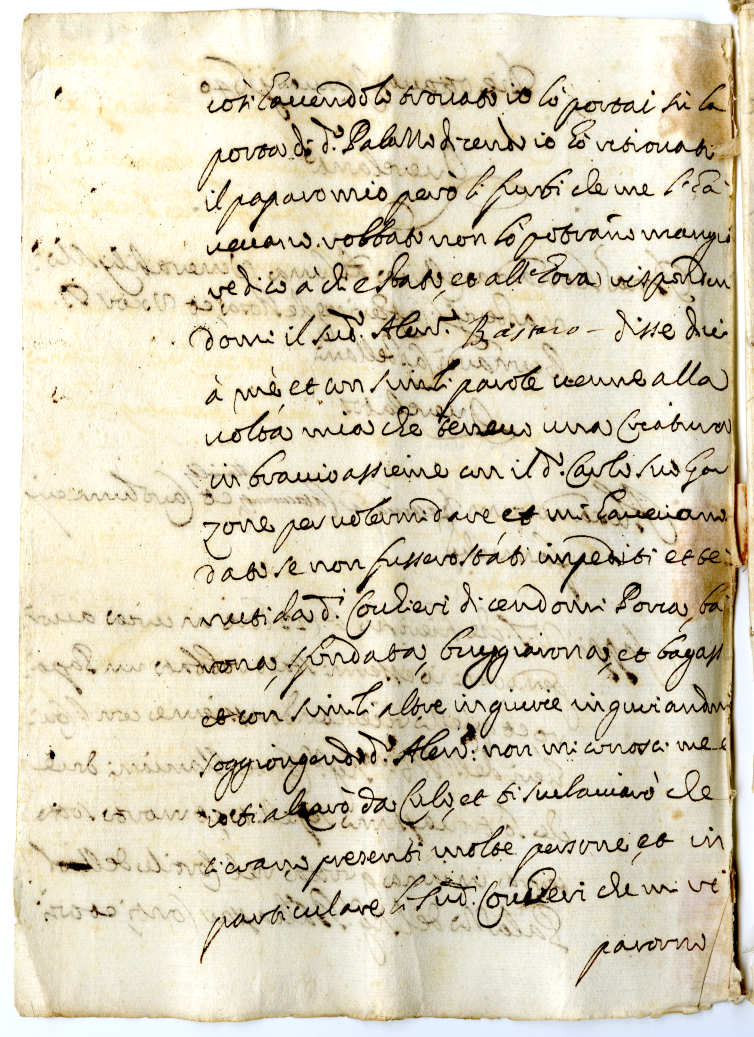 così havendolo trovato io lo portai sù la
porta di d.º Palazzo dicendo io hò ritrovato
il paparo mio però li furbi che me l'ha
vevano robbato non lo potrano mangi
vedico a chi è stato, et all'hora risponden
domi il sud.º Aless.º Bastaro - disse dici
à mè, et con simili parole venne alla
volta mia che tenevo una Creatura
in braccio assieme con il d.º Carlo suo Gar
zone per volermi dare et mi havevano
dato se non fussero stati impediti et te
nuti da d.i Corrieri dicendomi Porca, ba
rona, sfondata, buggiarona, et bagass
et con simili altre ingiurie ingiuriandomi
soggiongendo d.º Aless.º: non mi conosci me e
io ti alzarò da Culo, et ti sculaciarò che
ci erano presenti molte persone, et in
particulare li sud.i Corrieri che mi ri
pararno